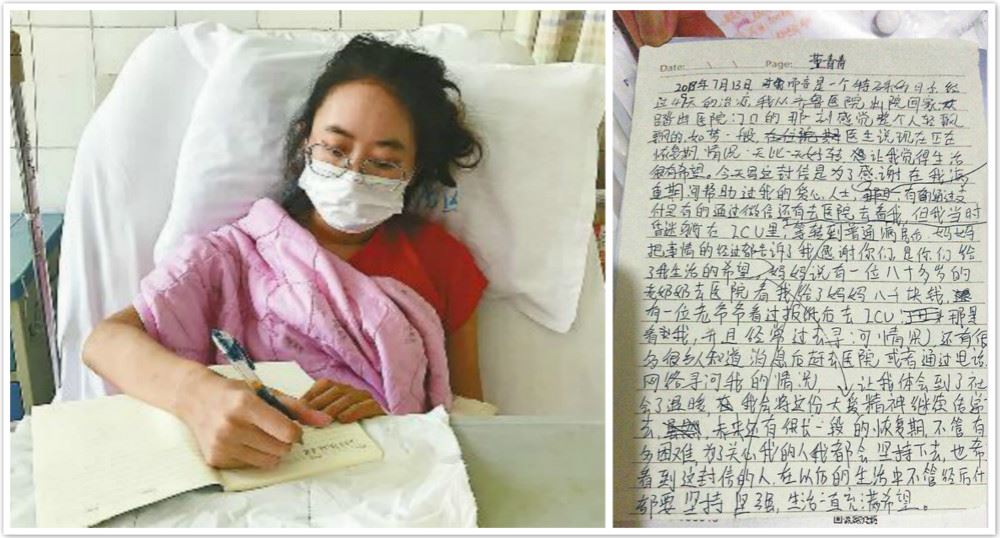 Date: Page: 董青青
年7月13日 是一个特殊的日子 经
过49天的治疗,我从齐鲁医院出院回家
踏出医院门口的那一刻感觉整个人轻飘
飘的如梦一般 医生说现在正在
恢复期 情况一天比一天好转 让我觉得生活
很有希望。今天写这封信是为了感谢在我病
重期间帮助过我的爱心人士 有的通过支
付宝有的通过微信还有去医院去看我,但我当时
在ICU里 等转到普通病房后 妈妈
把事情的经过都告诉了我,感谢你们,是你们给
了我生活的希望。妈妈说有一位八十多岁的
老奶奶去医院看我给了妈妈八十块钱,
有一位老爷爷看过报纸后去ICU 那里
看我,并且经常过去寻问情况,还有很
多好人知道消息后赶去医院,或者通过电话
网络寻问我的情况 让我体会到了社
会了温暖,我会将这份大爱精神继续传递下
去 未来还有很长一段的恢复期,不管有
多困难,为了关心我的人我都会坚持下去,也希
看到这封信的人,在以后的生活中不管经历什
都要坚持 坚强,生活一直充满希望。